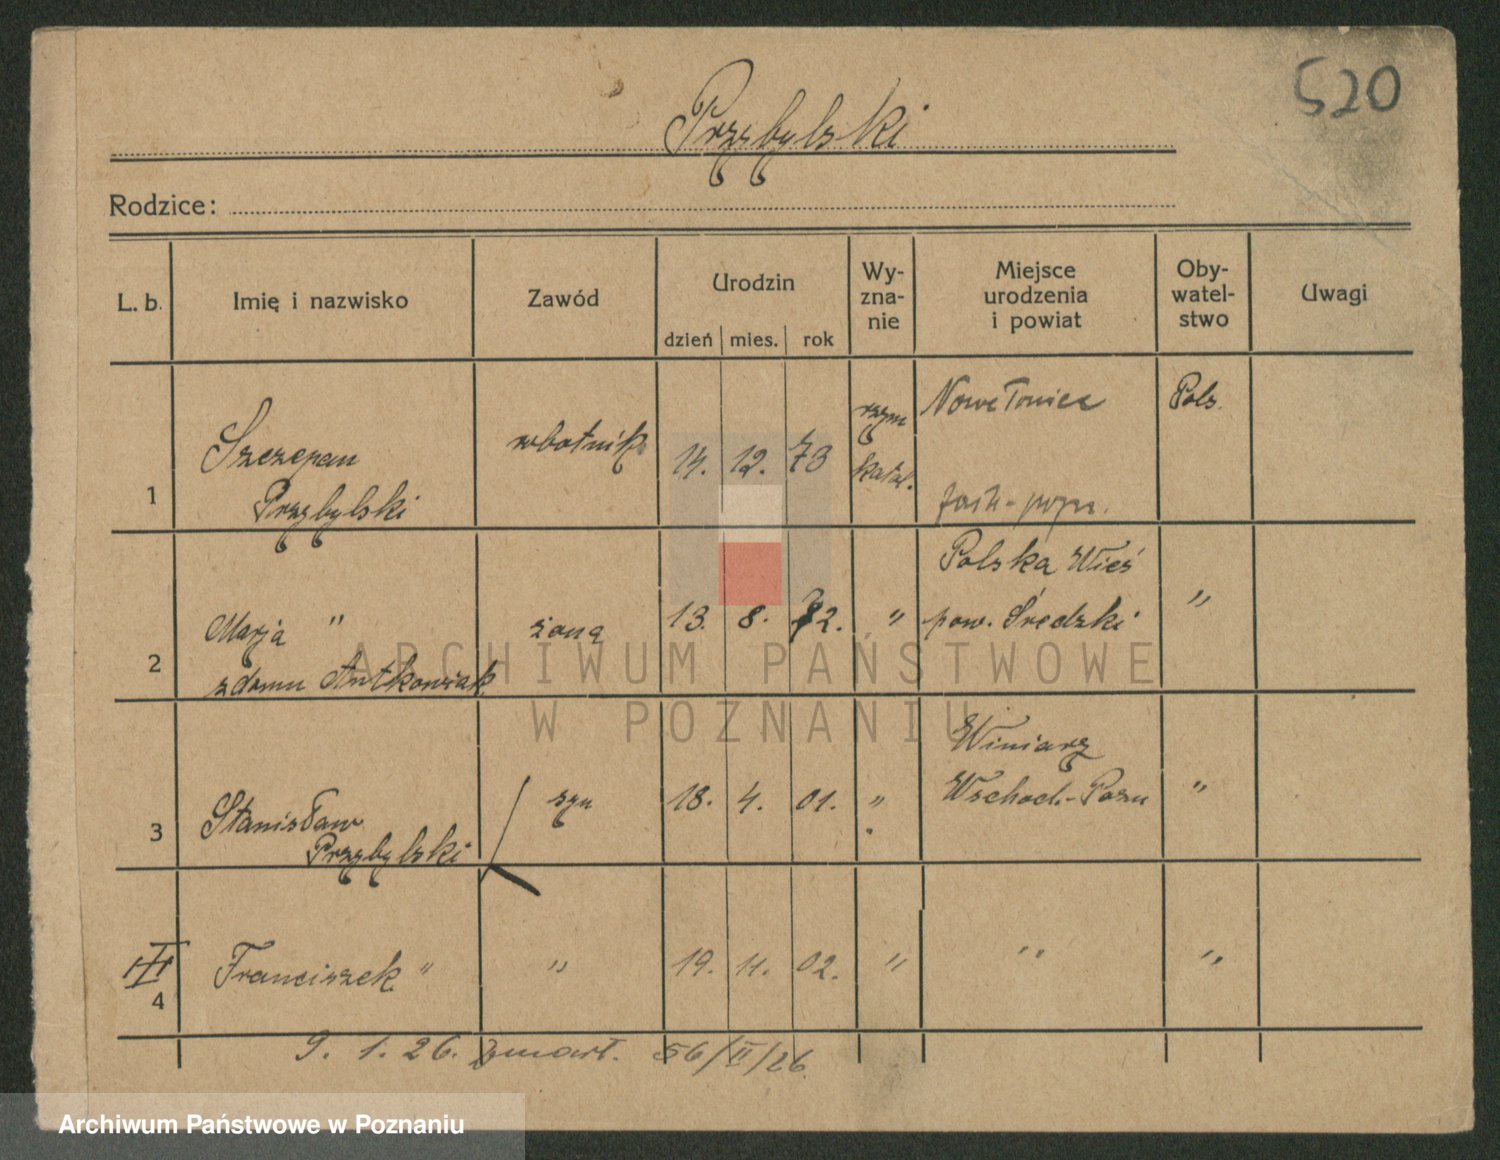 520
Przybylski
Rodzice:
L. b. Imię i nazwisko Zawód Urodzin dzień mies. rok Wy-zna-nie Miejsce urodzenia i powiat Oby-watel-stwo Uwagi
1 Szczepan Przybylski robotnik 14. 12. 73 rzym katol. Pols.
2 Marja " z domu Antkowiak żona 13. 8. 72. " Polska Wieś pow. Średzki "
3 Stanisław Przybylski syn 18. 4. 01. " Winiary Wschod.-Pozn "
4 Franciszek " " 19. 11. 02. " " "
9. 1. 26. zmarł. 56/II/26
ARCHIWUM PAŃSTWOWE
W POZNANIU
Archiwum Państwowe w Poznaniu